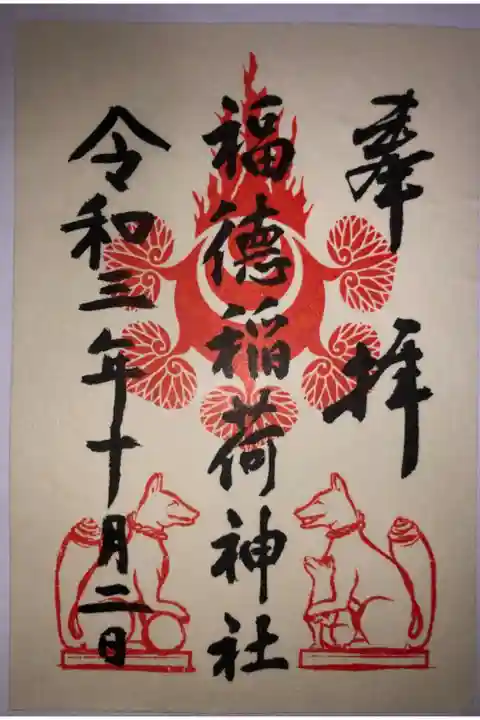 奉拝
福徳稲荷神社
令和三年十月二日